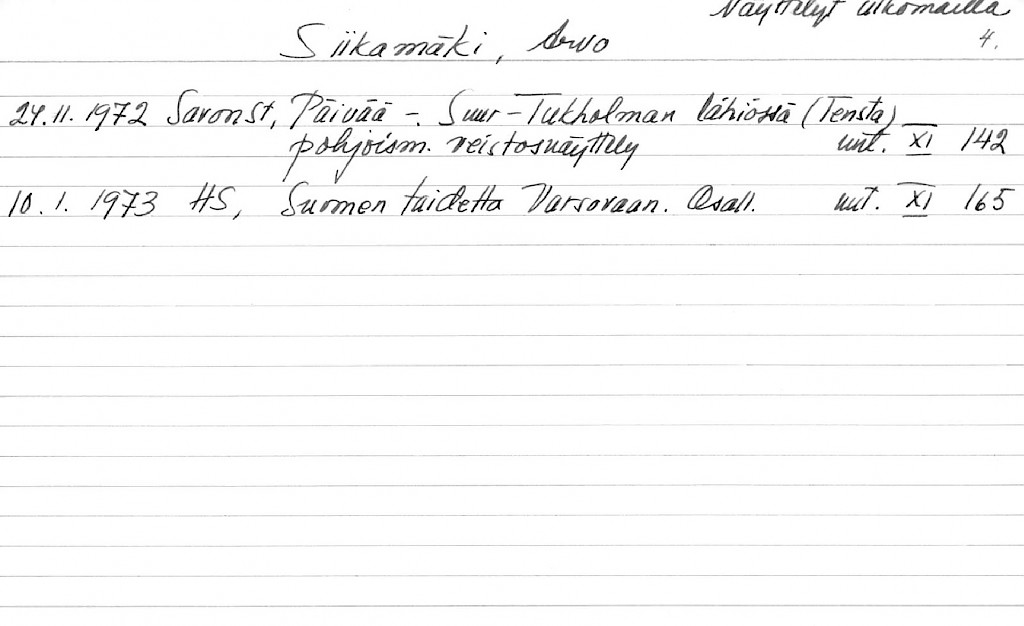 Näyttelyt ulkomailla
4.
Siikamäki, Arvo
24.11.1972 Savons t, Päivää -. Suur-Tukholman lähiössä (Tensta)
pohjoism. veistosnäyttely uut. XI 142
10.1.1973 HS, Suomen taidetta Varsovaan. Osall. uut. XI 165